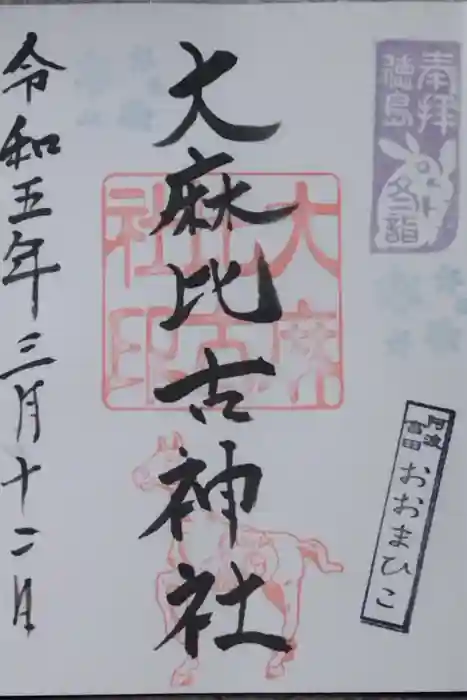 奉拝
徳島
冬詣
大麻比古神社
大麻
比古
社印
阿波
富田
おおまひこ
令和五年三月十二日